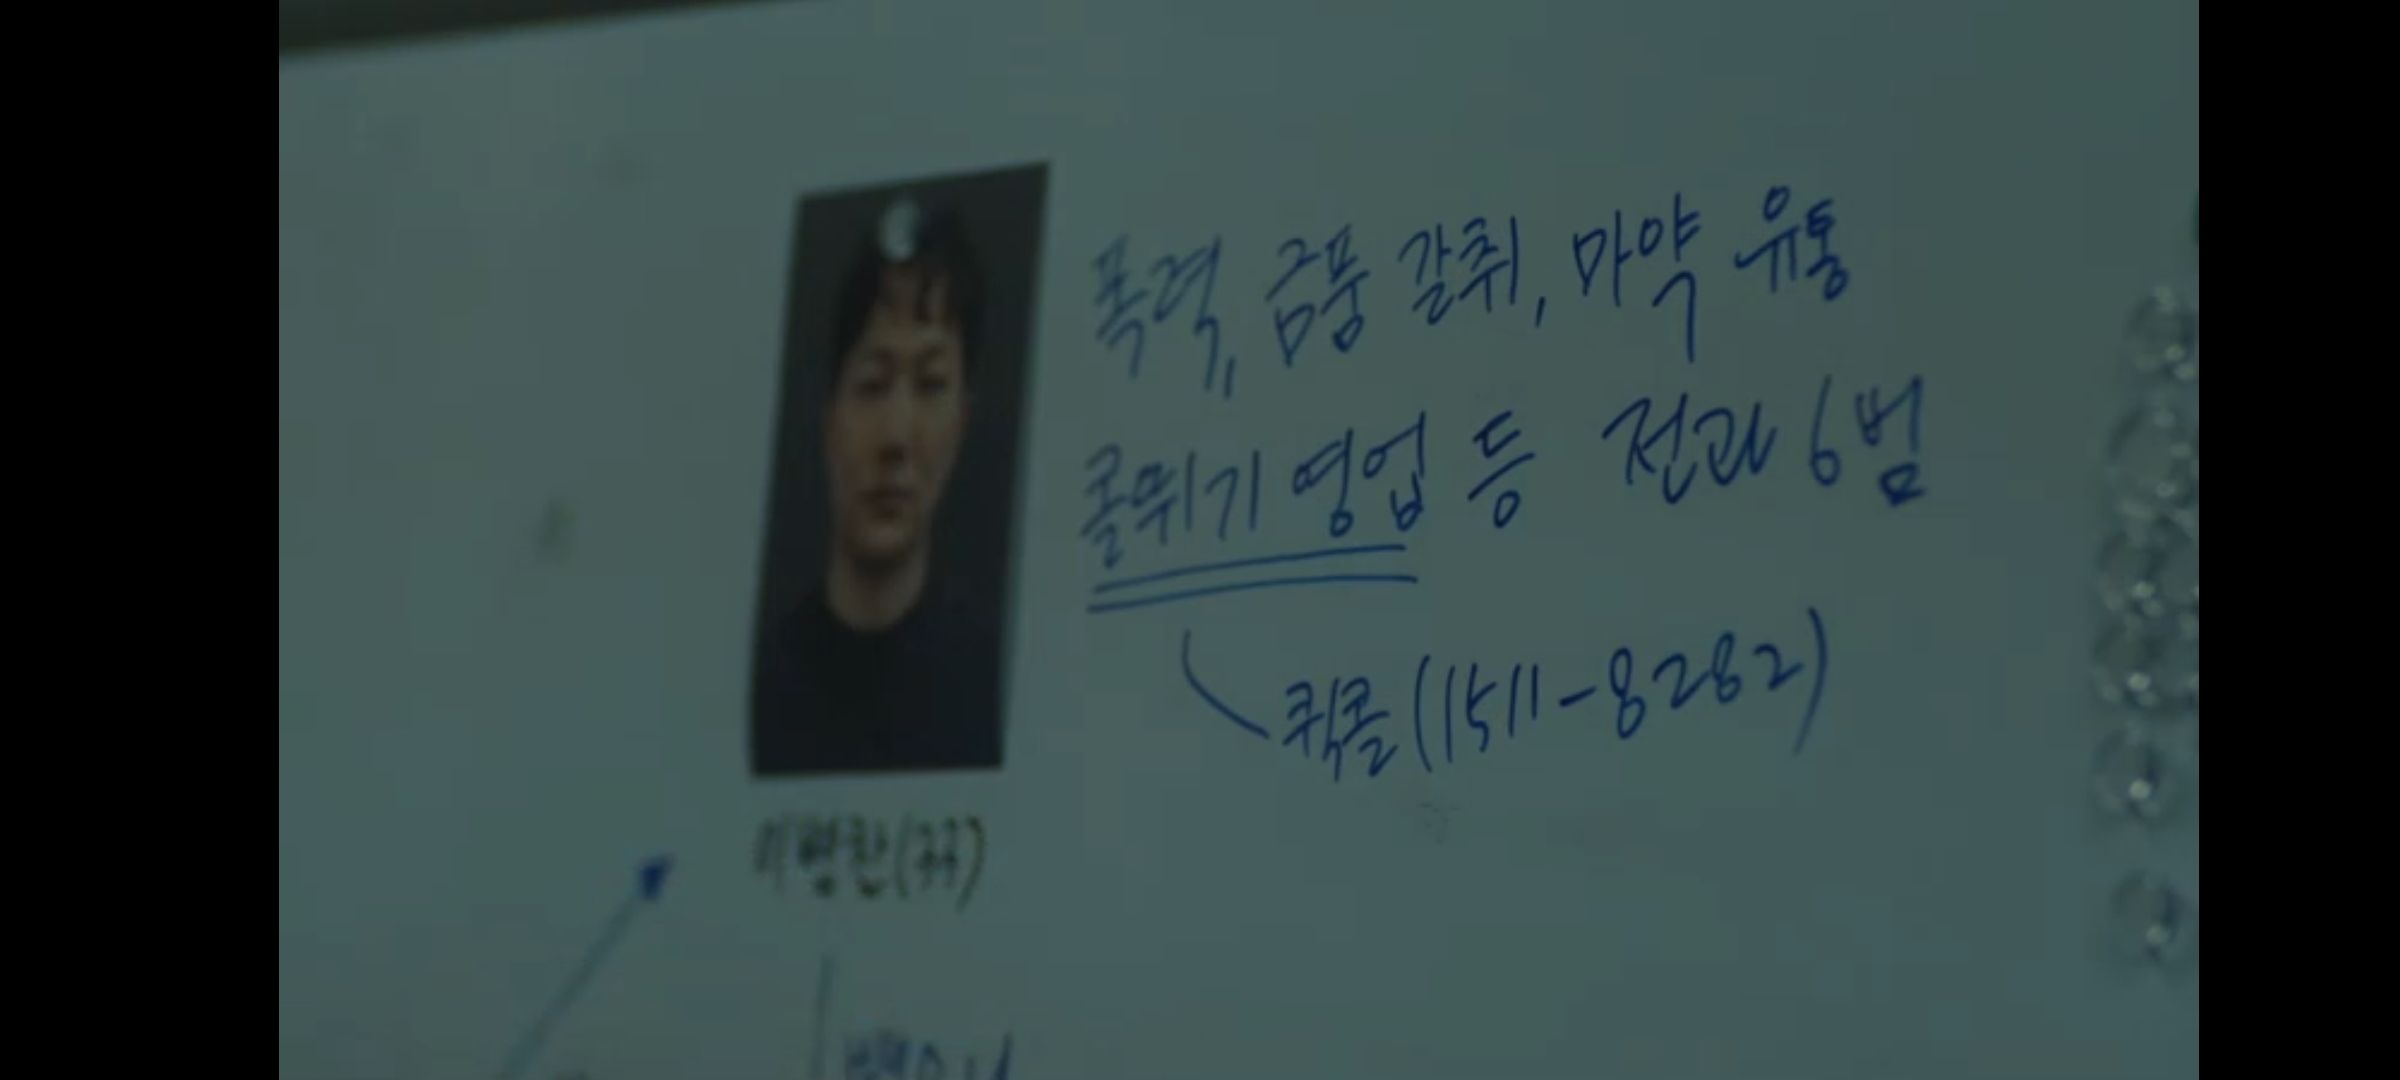 폭력, 금품 갈취, 마약 유통
콜뛰기 영업 등 전과 6범
퀵콜(1511-8282)